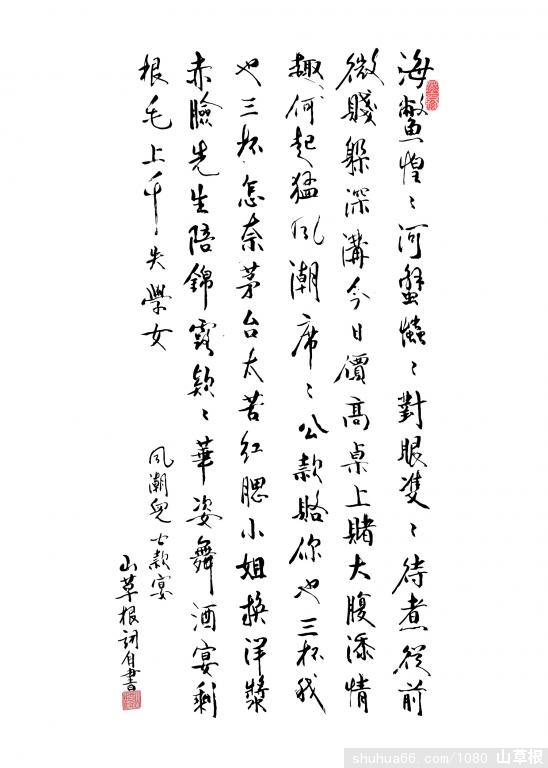 海鱉惶〻河蟹〻對眼〻待煮從前
微賤躲深溝今日價高桌上賭大腹添情
趣何起猛風潮席〻公款賂你也三杯我
也三杯怎奈茅台太苦紅腮小姐換洋漿
赤臉先生陪錦露〻華姿舞酒宴剩
根毛上千失學女
風潮兒公款宴
山草根詞自書
shuhua66.com/1080 山草根